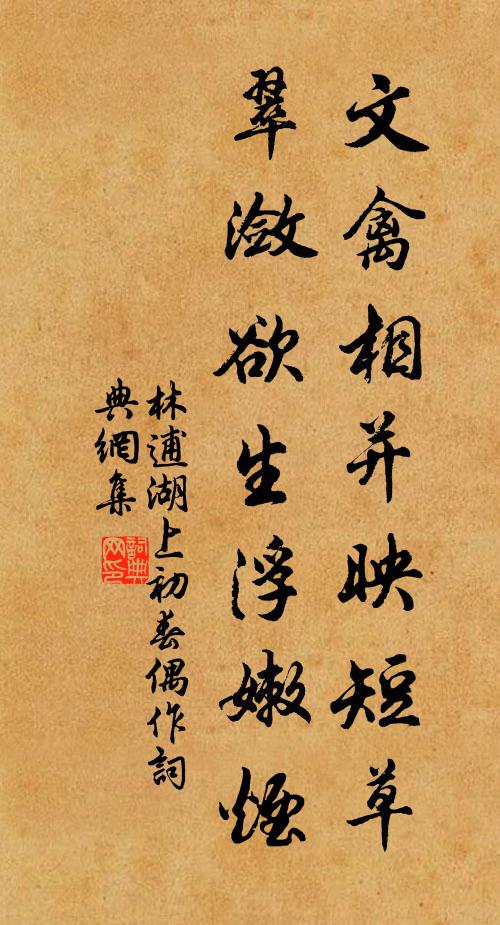 文禽相并映短草
翠潋欲生浮嫩煙
林逋湖上初春偶作詞
典網集
詞典
网印